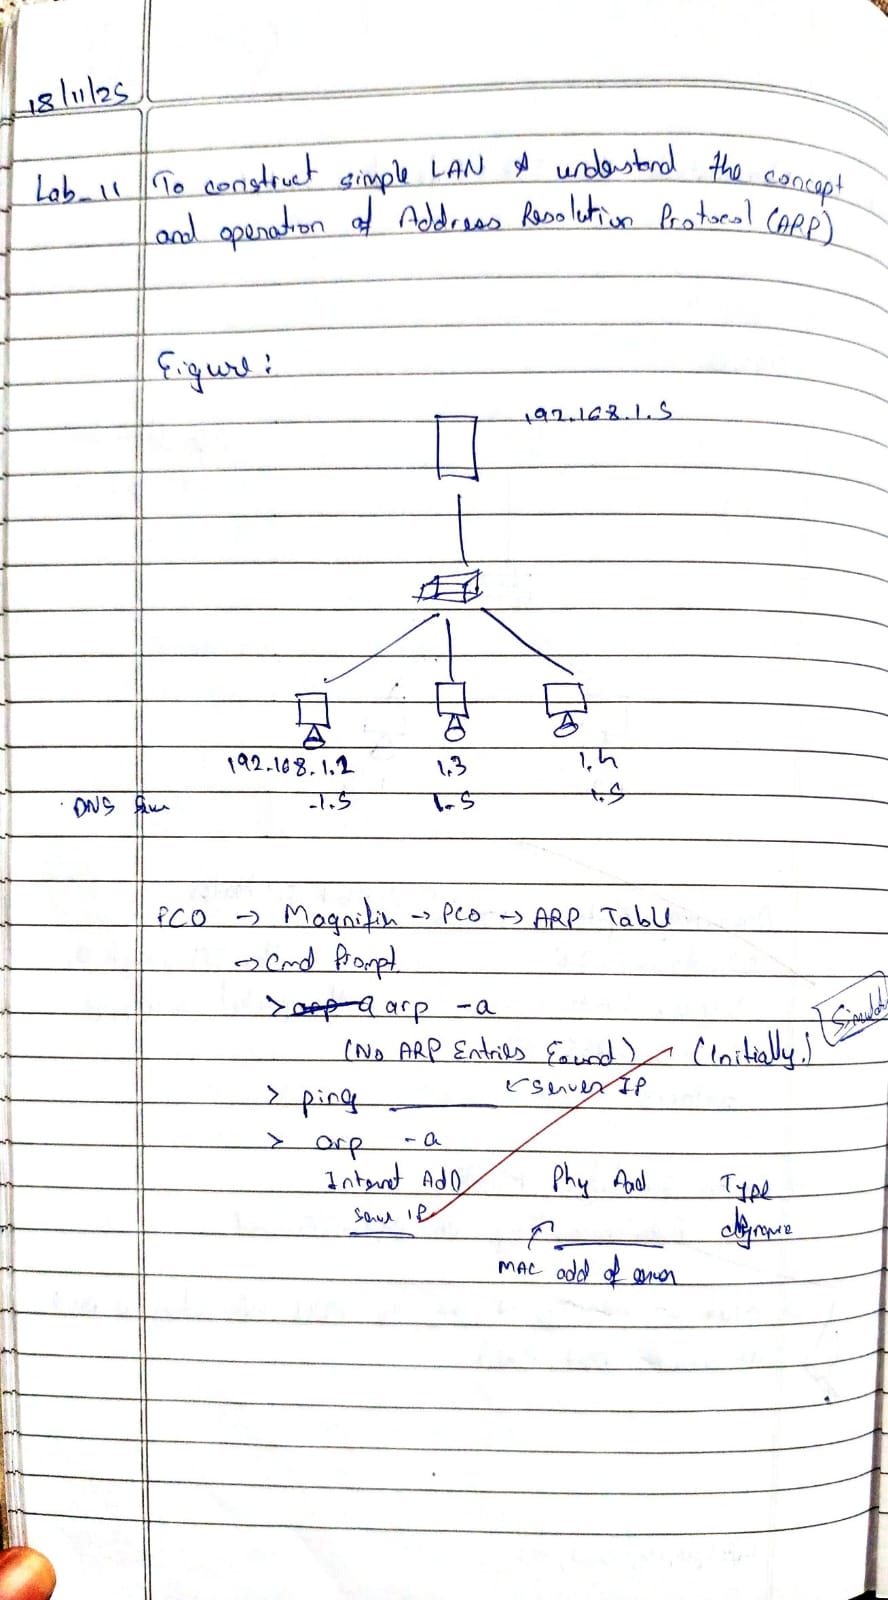 18/11/25
Lab-11 To construct simple LAN & understand the concept
and operation of Address Resolution Protocol (ARP)
Figure:
192.168.1.5
192.168.1.2 1.3 1.4
DNS -1.5 1.5 1.5
PC0 → Magnifier → PC0 → ARP Table
→ Cmd Prompt
> arp -a
(No ARP Entries Found) (Initially)
> ping ← Server IP
> arp -a
Internet Add Phy Add Type
Server IP
MAC add of server